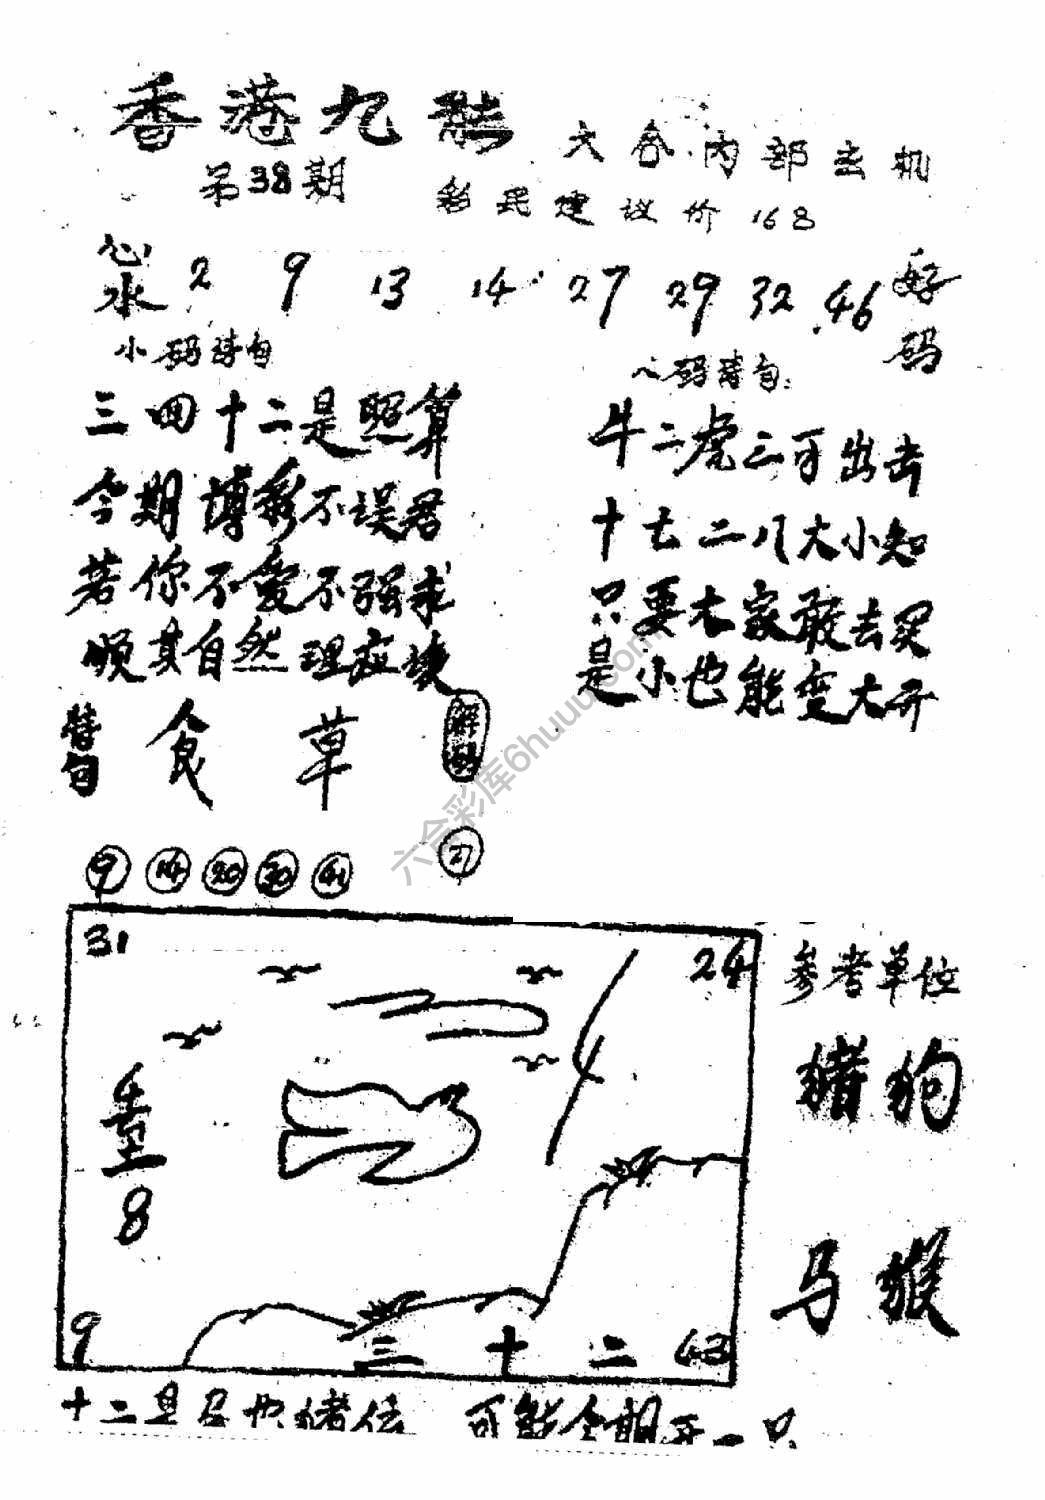 香港九龍
六合内部玄机
第38期
彩民建议价168
心水 2 9 13 14 27 29 32 46 好码
小码诗句
八码诗句:
三四十二是照算
今期博彩不误君
若你不爱不强求
顺其自然理应
牛二虎三可出去
十七二八大小知
只要大家敢去买
是小也能变大开
诗句 食草 解
9 14 20 30 41 27
31 24
4
8
9 三十二 43
参考单位
猪狗
马猴
十二 猪 可能今期开一只
六合彩库6huuu.com